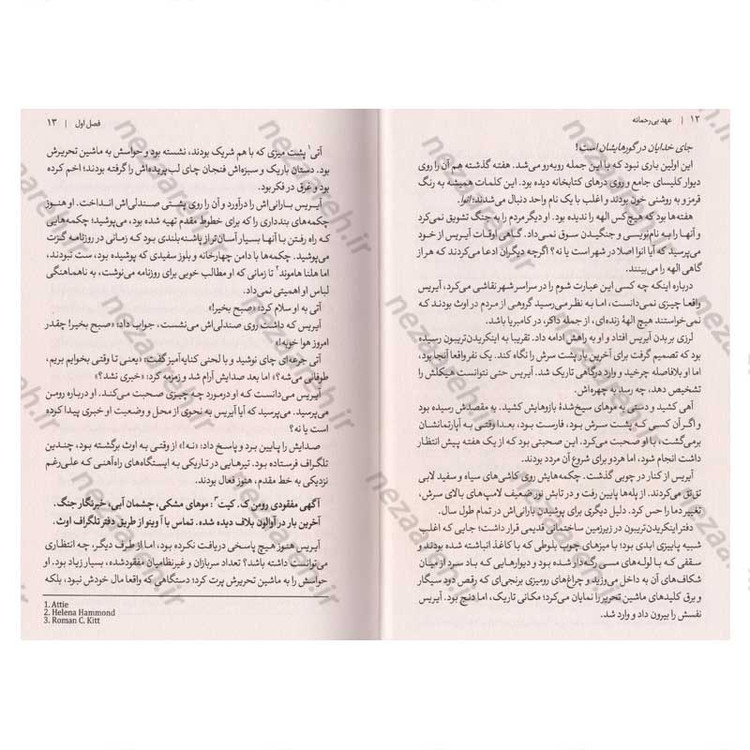 ۱۲ | عهد بی‌رحمانه
جای خدایان در گورهایشان است!
این اولین باری نبود که با این جمله روبه‌رو می‌شد. هفته گذشته هم آن را روی
دیوار کلیسای جامع و روی درهای کتابخانه دیده بود. این کلمات همیشه به رنگ
قرمز و به روشنی خون بودند و اغلب با یک نام واحد دنبال می‌شدند: انوا.
هفته‌ها بود که هیچ‌کس الهه را ندیده بود. او دیگر مردم را به جنگ تشویق نمی‌کرد
و آنها را به نام‌نویسی و جنگیدن سوق نمی‌داد. گاهی اوقات آیریس از خود
می‌پرسید که آیا انوا اصلا در شهر است یا نه؟ اگرچه دیگران ادعا می‌کردند که هر از
گاهی الهه را می‌بینند.
درباره اینکه چه کسی این عبارت شوم را در سراسر شهر نقاشی می‌کرد، آیریس
واقعا چیزی نمی‌دانست، اما به نظر می‌رسید گروهی از مردم در اوث بودند که
نمی‌خواستند هیچ الههٔ زنده‌ای، از جمله داکر، در کامبریا باشد.
لرزی بر بدن آیریس افتاد و او به راهش ادامه داد. تقریبا به اینکریدن‌تریبون رسیده
بود که تصمیم گرفت برای آخرین بار پشت سرش را نگاه کند. یک نفر واقعا آنجا بود،
اما او بلافاصله چرخید و وارد درگاهی تاریک شد. آیریس حتی نتوانست هیکلش را
تشخیص دهد، چه رسد به چهره‌اش.
آهی کشید و دستی به موهای سیخ‌شدهٔ بازوهایش کشید. به مقصدش رسیده بود
و اگر آن کسی که پشت سرش بود، فارست بود، بعدا وقتی به آپارتمانشان
برمی‌گشت، با او صحبت می‌کرد. این صحبتی بود که از یک هفته پیش انتظار
داشت انجام شود، اما هر دو برای شروع آن مردد بودند.
آیریس از کنار در چوبی گذشت. چکمه‌هایش روی کاشی‌های سیاه و سفید لابی
تق‌تق می‌کردند. از پله‌ها پایین رفت و در تابش نور ضعیف لامپ‌های بالای سرش،
تغییر دما را حس کرد. دلیل دیگری برای پوشیدن بارانی‌اش در تمام طول سال.
دفتر اینکریدن‌تریبون در زیرزمین ساختمانی قدیمی قرار داشت؛ جایی که اغلب
شبیه پاییزی ابدی بود؛ با میزهای چوب بلوطی که با کاغذ انباشته شده بودند و
سقفی که با لوله‌های مسی رگه‌دار شده بود و دیوارهایی که باد سرد از میان
شکاف‌های آن به داخل می‌وزید و چراغ‌های رومیزی برنجی‌ای که رقص دود سیگار
و برق کلیدهای ماشین تحریر را نمایان می‌کرد؛ مکانی تاریک، اما دنج بود. آیریس
نفسش را بیرون داد و وارد شد.
فصل اول | ۱۳
آتی۱ پشت میزی که با هم شریک بودند، نشسته بود و حواسش به ماشین تحریرش
بود. دستان باریک و سبزه‌اش فنجان چای لب‌پریده‌اش را گرفته بودند؛ اخم کرده
بود و غرق در فکر بود.
آیریس بارانی‌اش را درآورد و آن را روی پشتی صندلی‌اش انداخت. او هنوز
چکمه‌های بندداری را که برای خطوط مقدم تهیه شده بود، می‌پوشید؛ چکمه‌هایی
که راه رفتن با آنها بسیار آسان‌تر از پاشنه‌بلندی بود که زمانی در روزنامه گزت
می‌پوشید. چکمه‌ها با دامن چهارخانه و بلوز سفیدی که پوشیده بود، ست نبودند،
اما هلنا هاموند۲ تا زمانی که او مطالب خوبی برای روزنامه می‌نوشت، به ناهماهنگی
لباس او اهمیتی نمی‌داد.
آتی به او سلام کرد: «صبح بخیر!»
آیریس که داشت روی صندلی‌اش می‌نشست، جواب داد: «صبح بخیر! چقدر
امروز هوا خوبه!»
آتی جرعه‌ای چای نوشید و با لحنی کنایه‌آمیز گفت: «یعنی تا وقتی بخوایم بریم،
طوفانی می‌شه؟» اما بعد صدایش آرام شد و زمزمه کرد: «خبری نشد؟»
آیریس می‌دانست که او درمورد چه چیزی صحبت می‌کند. او درباره رومن
می‌پرسید. می‌پرسید که آیا آیریس به نحوی از محل و وضعیت او خبری پیدا کرده
است یا نه؟
صدایش را پایین برد و پاسخ داد: «نه!» از وقتی به اوث برگشته بود، چندین
تلگراف فرستاده بود. تیرهایی در تاریکی به ایستگاه‌های راه‌آهنی که علی‌رغم
نزدیکی به خط مقدم، هنوز فعال بودند.
آگهی مفقودی رومن ک. کیت۳: موهای مشکی، چشمان آبی، خبرنگار جنگ.
آخرین بار در آوالون بلاف دیده شده. تماس با آ وینو از طریق دفتر تلگراف اوث.
آیریس هنوز هیچ پاسخی دریافت نکرده بود، اما از طرف دیگر، چه انتظاری
می‌توانست داشته باشد؟ تعداد سربازان و غیرنظامیان مفقودشده، بسیار زیاد بود. او
حواسش را به ماشین تحریرش پرت کرد؛ دستگاهی که واقعا مال خودش نبود، بلکه
1. Attie
2. Helena Hammond
3. Roman C. Kitt
nezaareh.ir